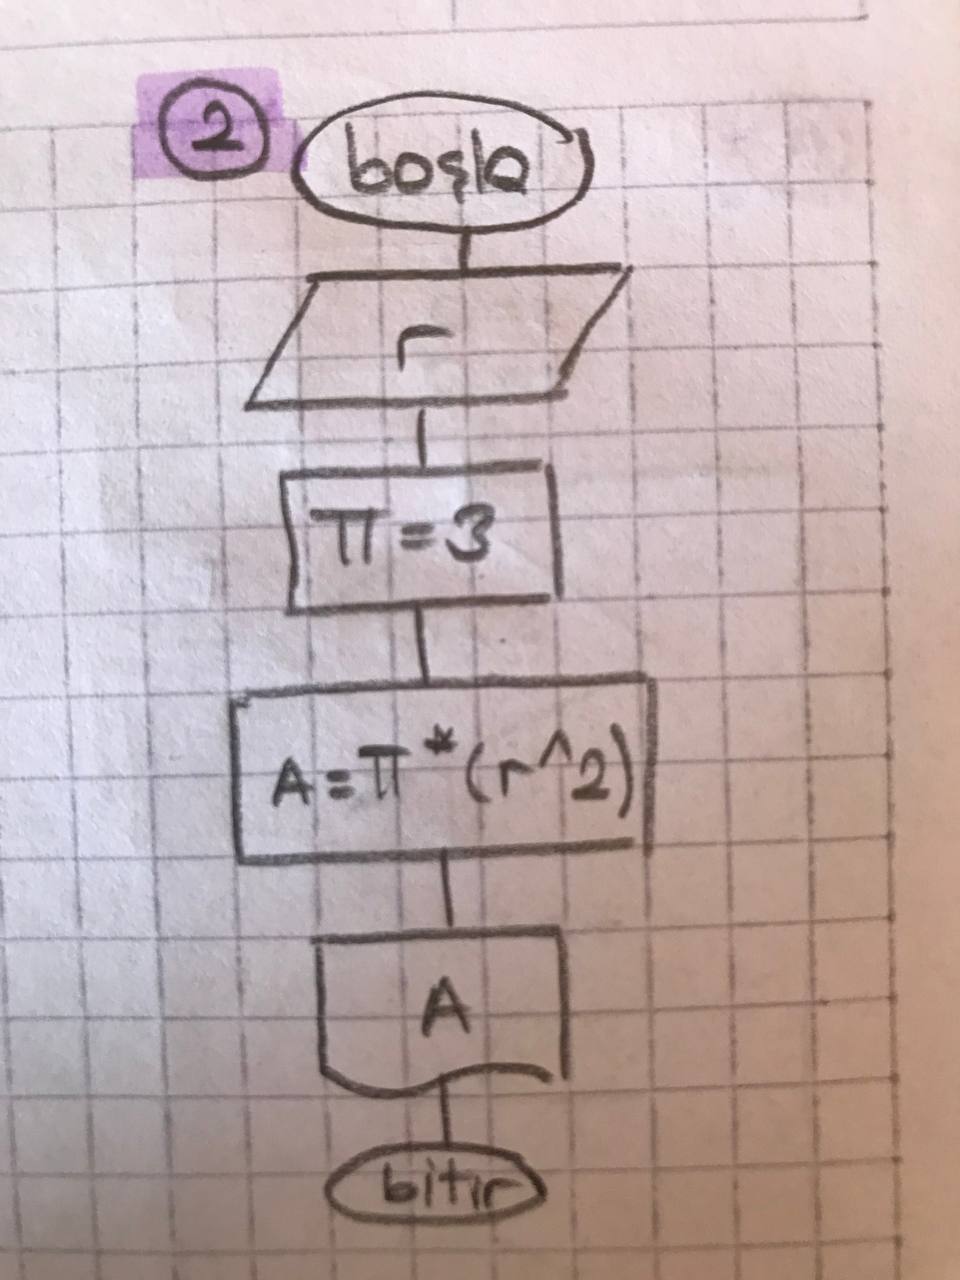 2
başla
r
π = 3
A = π * (r^2)
A
bitir